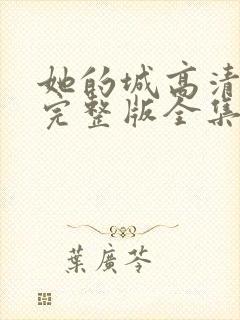 她的城高清
完整版全集
葉廣芩